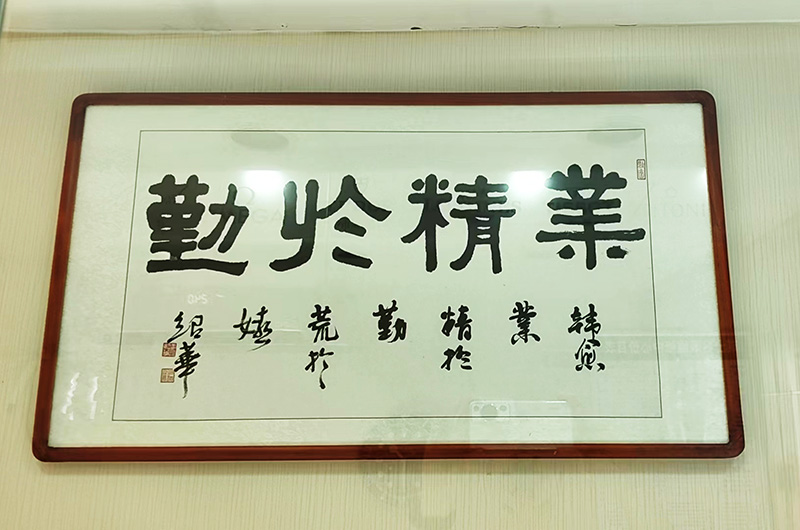 業精於勤
韓愈
業
精於
勤
荒於
嬉
紹華